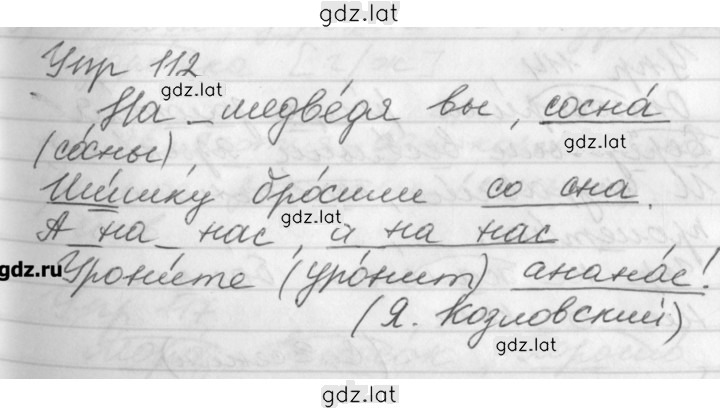 gdz.lat
Упр 112
gdz.lat
На _медве́дя вы, сосна́
(со́сны)
gdz.lat
Ши́шку бро́сили со сна.
gdz.lat
А на_нас, а на нас
gdz.ru
Урони́те (уро́нит) анана́с!
(Я. Козловский)
gdz.lat
gdz.lat